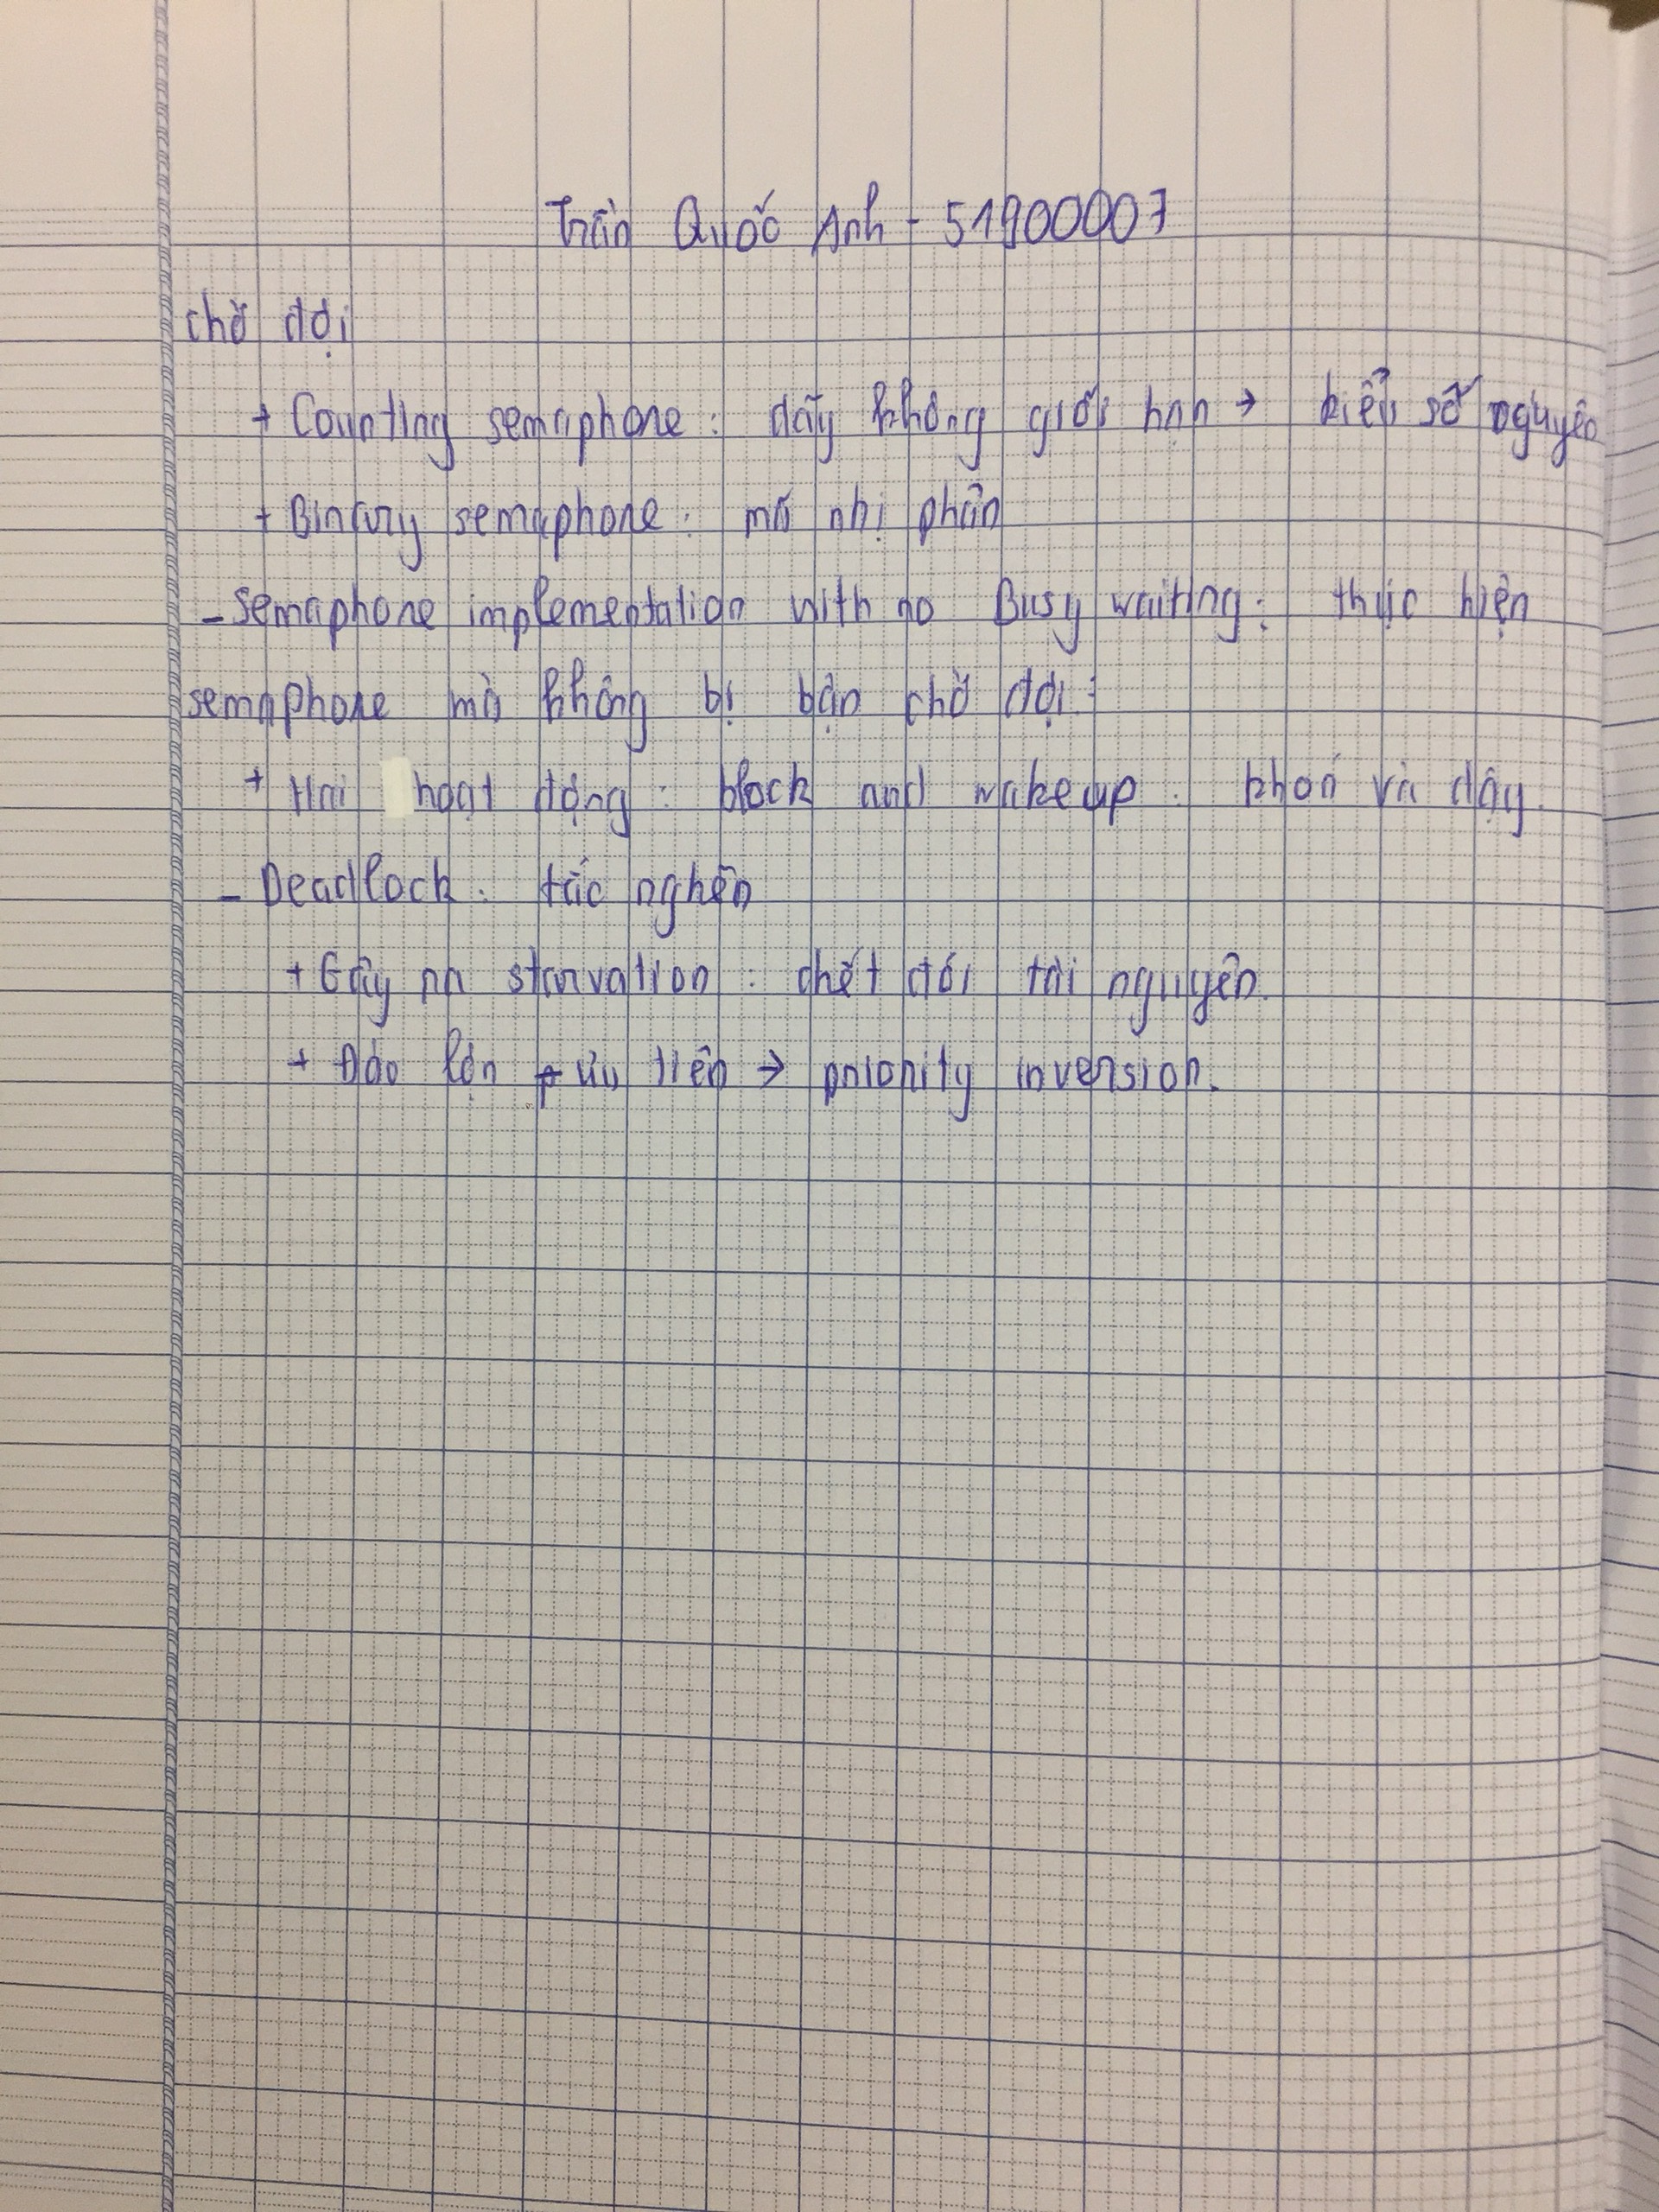 Trần Quốc Anh - 51900007
chờ đợi
+ Counting semaphore: dãy không giới hạn → kiểu số nguyên
+ Binary semaphore: mã nhị phân
- Semaphore implementation with no Busy waiting: thực hiện
semaphore mà không bị bận chờ đợi:
+ Hai hoạt động: block and wakeup: khoá và dậy
- Deadlock: tắc nghẽn
+ Gây ra starvation: chết đói tài nguyên.
+ Đảo lộn ưu tiên → priority inversion.